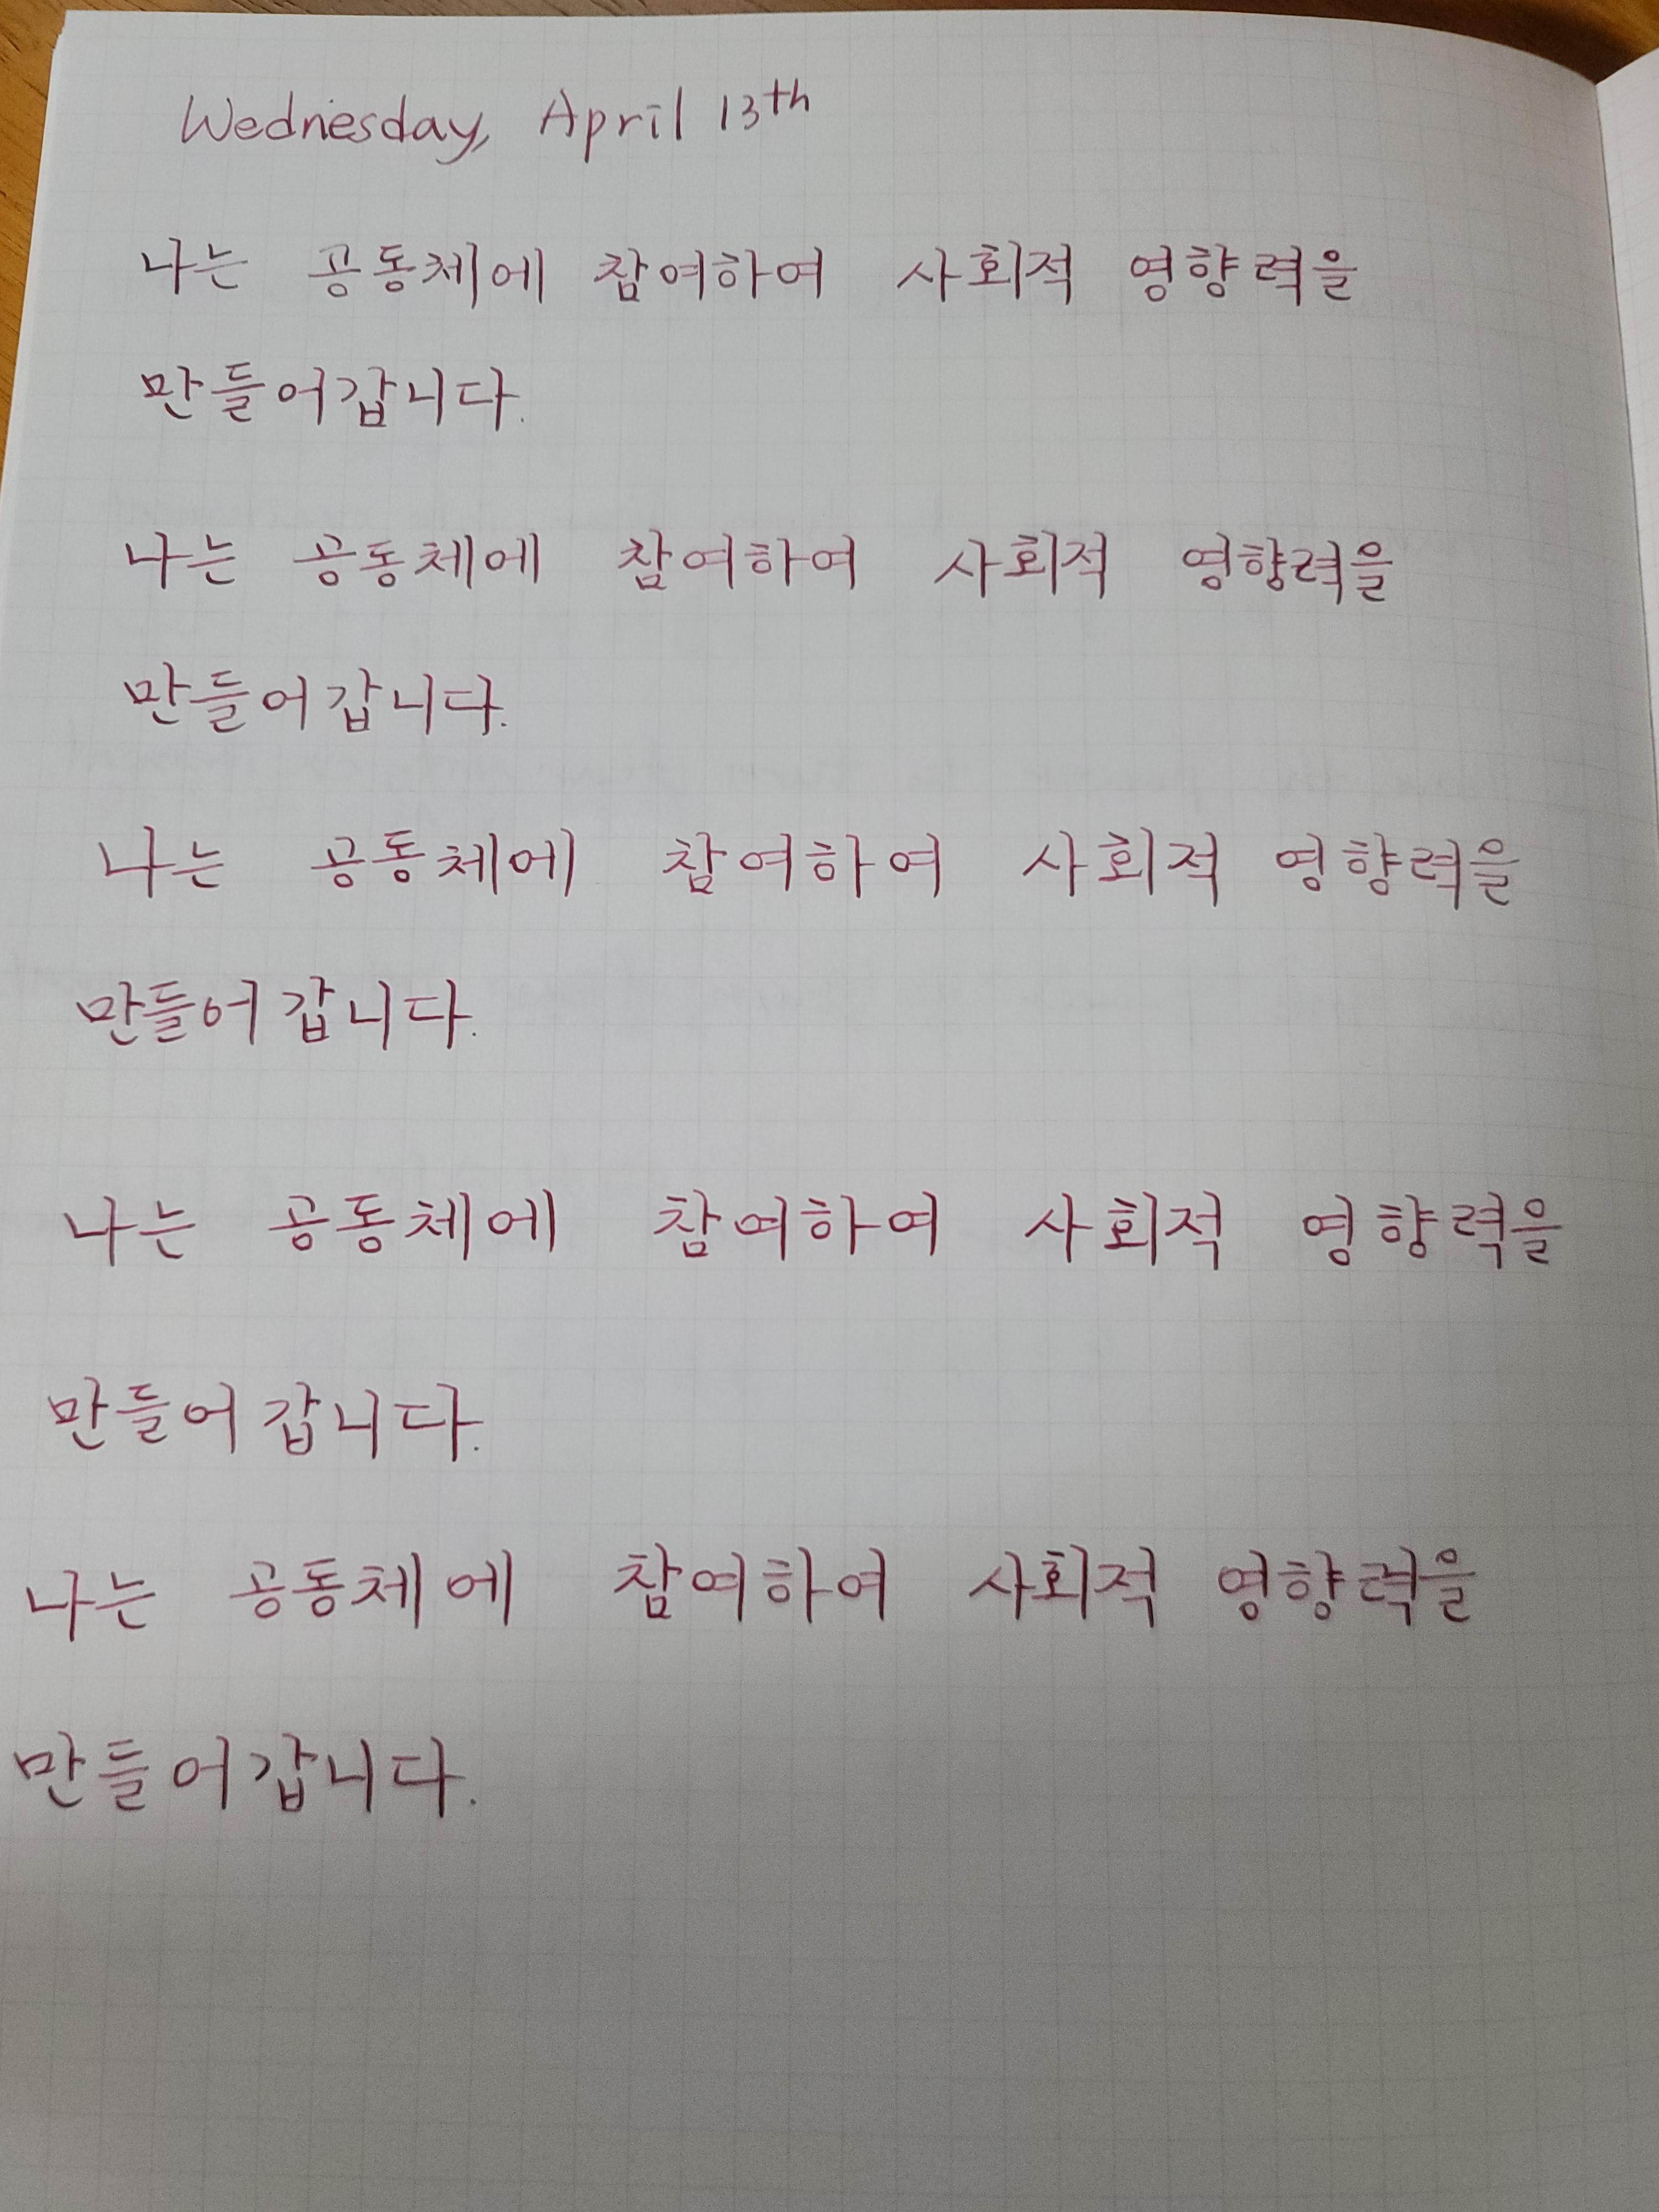 Wednesday, April 13th
나는 공동체에 참여하여 사회적 영향력을
만들어갑니다.
나는 공동체에 참여하여 사회적 영향력을
만들어갑니다.
나는 공동체에 참여하여 사회적 영향력을
만들어갑니다.
나는 공동체에 참여하여 사회적 영향력을
만들어갑니다.
나는 공동체에 참여하여 사회적 영향력을
만들어갑니다.